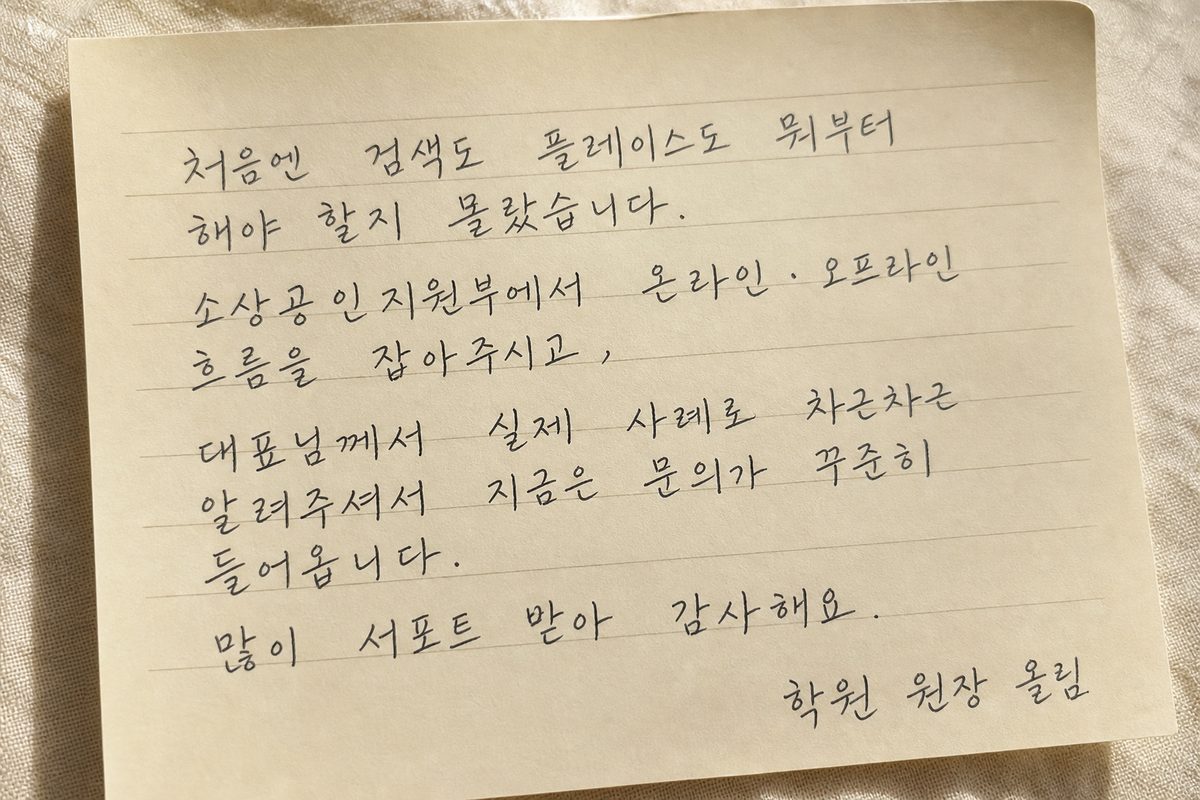 처음엔 검색도 플레이스도 뭐부터
해야 할지 몰랐습니다.
소상공인지원부에서 온라인·오프라인
흐름을 잡아주시고,
대표님께서 실제 사례로 차근차근
알려주셔서 지금은 문의가 꾸준히
들어옵니다.
많이 서포트 받아 감사해요.
학원 원장 올림